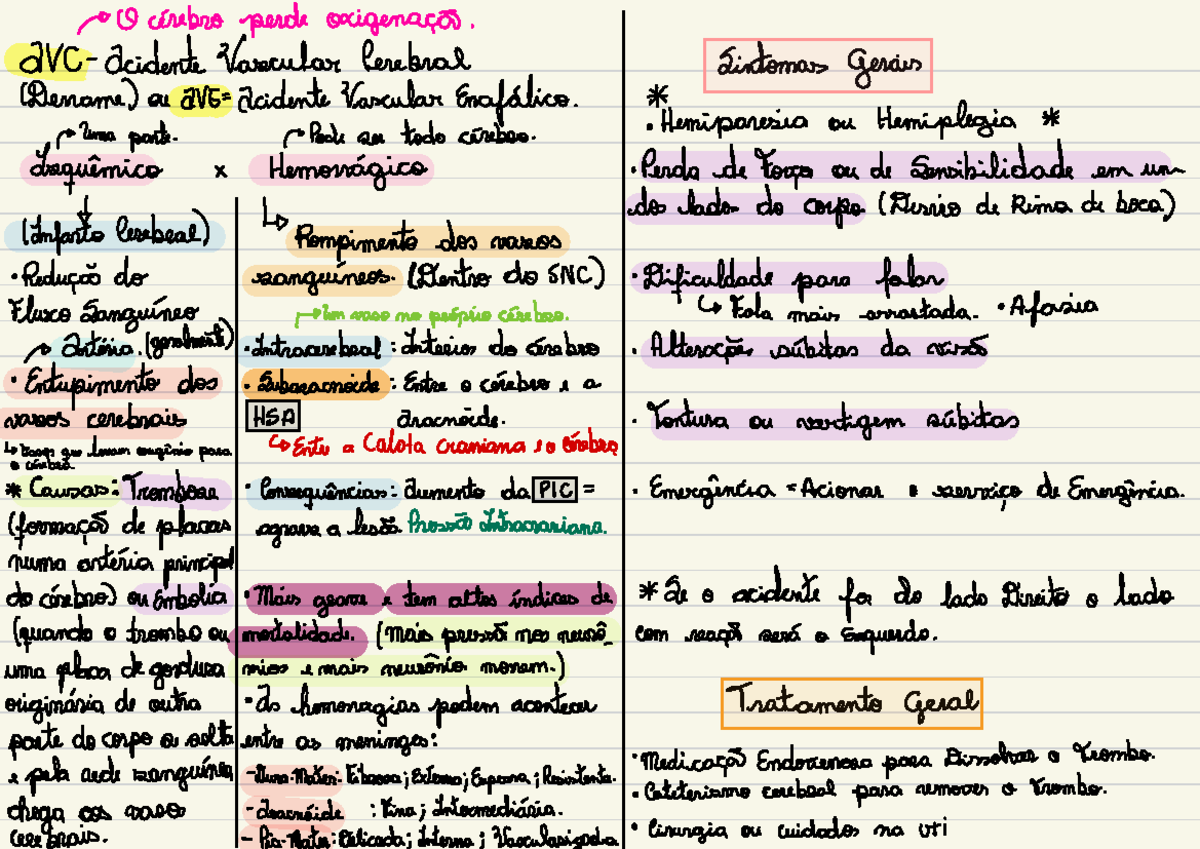 O cérebro perde oxigenação.
AVC - Acidente Vascular Cerebral
(Derrame) ou AVE = Acidente Vascular Encefálico.
Uma parte.
Pode ser todo cérebro.
Isquêmico x Hemorrágico
(Infarto Cerebral)
• Redução do
Fluxo Sanguíneo
Artéria. (geralmente)
• Entupimento dos
vasos cerebrais
que levam oxigênio para
o cérebro.
* Causas: Trombose
(formação de placas
numa artéria principal
do cérebro) ou Embolia
(quando o trombo ou
uma placa de gordura
originária de outra
parte do corpo se solta
e pela rede sanguínea
chega aos vasos
cerebrais.
Rompimento dos vasos
sanguíneos. (Dentro do SNC)
Um vaso no próprio cérebro.
• Intracerebral : Interior do cérebro
• Subaracnóide : Entre o cérebro e a
HSA aracnóide.
Entre a Calota craniana e o cérebro
• Consequências: Aumento da PIC =
agrava a lesão. Pressão Intracraniana.
• Mais grave e tem altos índices de
mortalidade. (Mais pressão nos neurô-
nios e mais neurônio morrem.)
• As hemorragias podem acontecer
entre as meninges:
- Dura-Mater: Fibrosa; Externa; Espessa; Resistente.
- Aracnóide : Fina; Intermediária.
- Pia-Mater: Delicada; Interna; Vascularizada
Sintomas Gerais
*
• Hemiparesia ou Hemiplegia *
• Perda de Força ou de Sensibilidade em um
dos lados do corpo. (Desvio de Rima de boca)
• Dificuldade para falar
Fala mais arrastada. • Afasia
• Alterações súbitas da visão
• Tontura ou vertigem súbitas
• Emergência = Acionar o serviço de Emergência.
* Se o acidente for do lado Direito o lado
com reação será o Esquerdo.
Tratamento Geral
• Medicação Endovenosa para Dissolver o Trombo.
• Cateterismo cerebral para remover o Trombo.
• Cirurgia ou cuidados na UTI